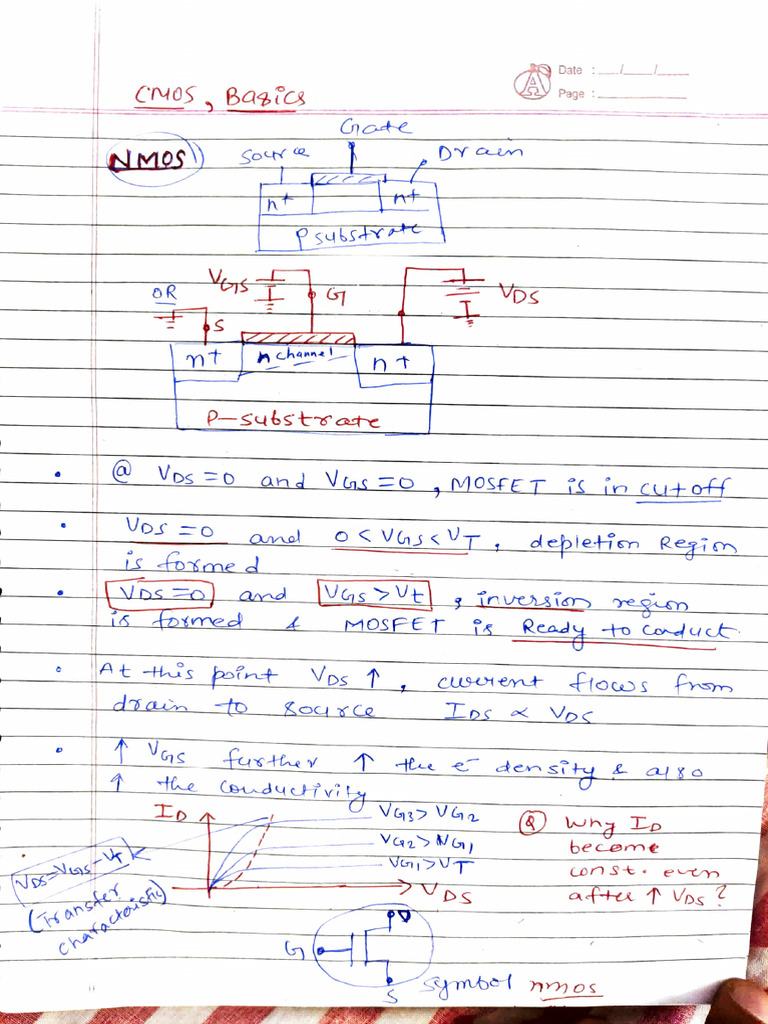 Date : __/__/__
Page : ________
CMOS, Basics
Gate
NMOS
Source
Drain
n+
n+
P substrate
VGS
OR
G
VDS
S
n+
n channel
n+
P-substrate
• @ VDS=0 and VGS=0, MOSFET is in cutoff
• VDS=0 and 0<VGS<VT, depletion Region
is formed
• VDS=0 and VGS>Vt, inversion region
is formed & MOSFET is Ready to conduct.
• At this point VDS ↑, current flows from
drain to source IDS ∝ VDS
• ↑ VGS further ↑ the e⁻ density & also
↑ the conductivity
ID
VG3>VG2
VG2>VG1
VG1>VT
VDS
VDS=VGS-VT
(Transfer
characteristic)
Q Why ID
become
const. even
after ↑ VDS?
D
G
S
symbol nmos